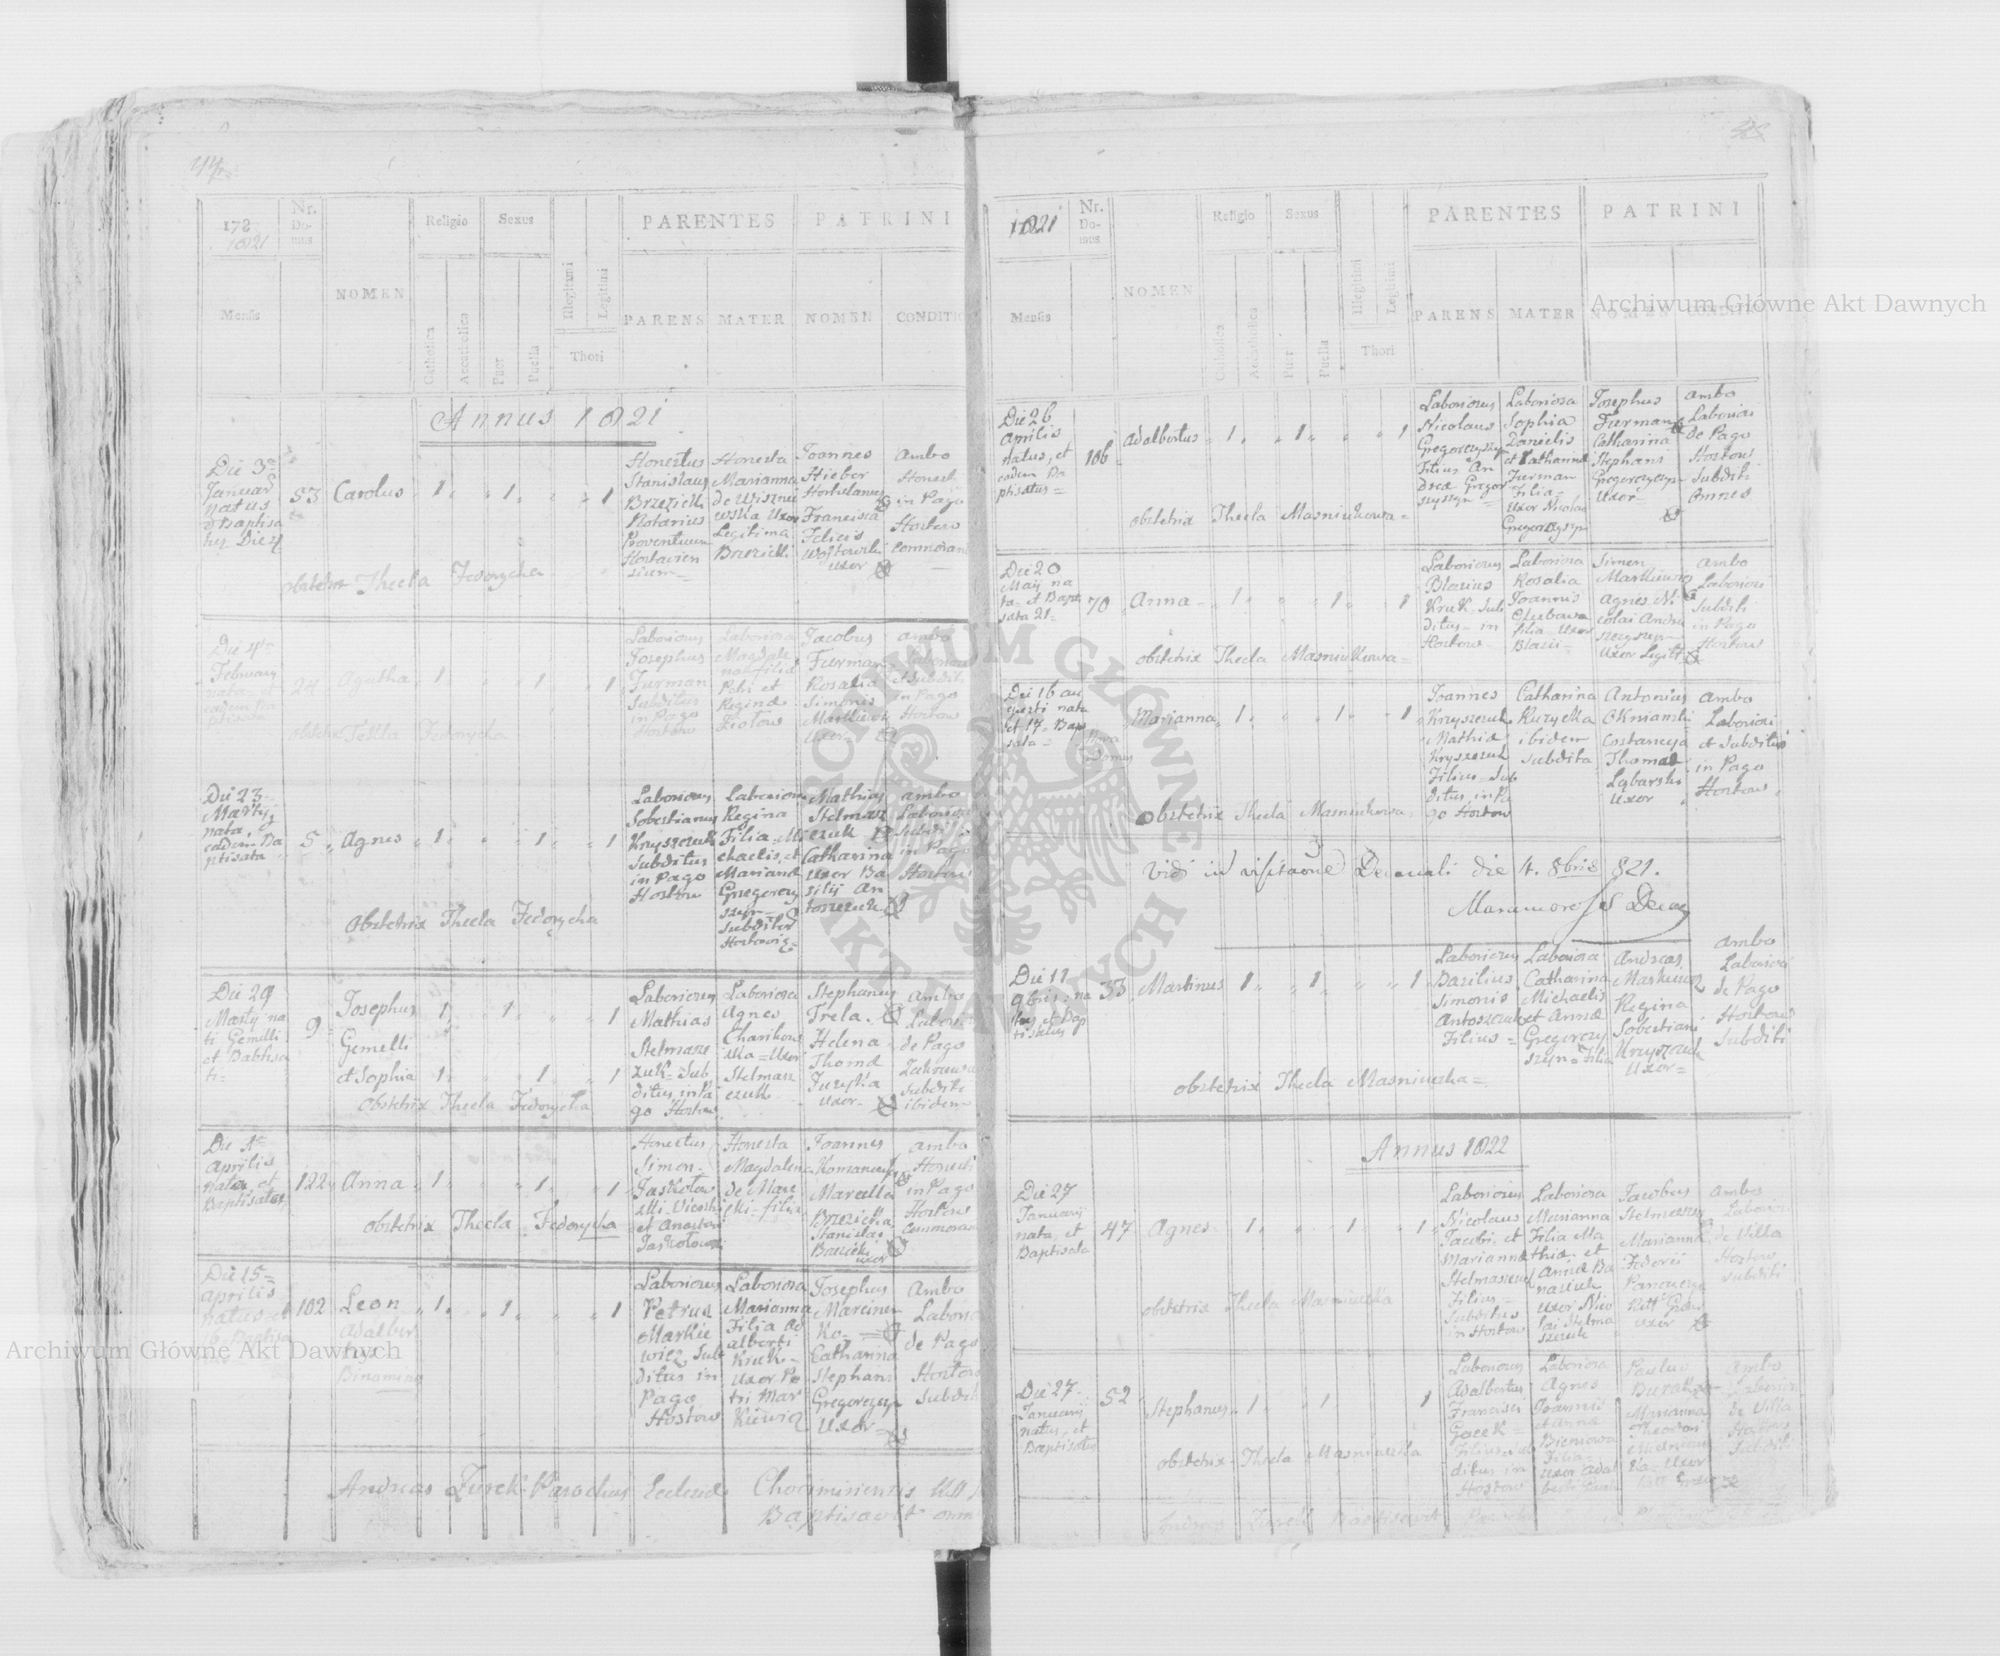 44
178
1821
Mensis
Nr.
Do-
mus
NOMEN
Religio
Catholica
Accatholica
Sexus
Puer
Puella
Illegitimi
Legitimi
Thori
PARENTES
PARENS
MATER
PATRINI
NOMEN
CONDITIO
Annus 1821
Die 3
Januar
natus
Baptisa
53
Carolus
1
1
1
Honestus
Stanislaus
Brzezicki
Notarius
Proventuum
Hostovien
sium
Honesta
Marianna
de Wisznie
wska Uxor
Legitima
Brzezicki
Joannes
Hieber
Hortulanus
Francisca
Felicis
uxor
Ambo
Honesti
in Pago
Hostow
commoran
obstetrix Thecla Fedorycha
Die 4
Februarii
nata et
eadem Ba
ptisata
24
Agatha
1
1
1
Laboriosus
Josephus
Furman
Subditus
in Pago
Hostow
Laboriosa
Magdale
na filia
Petri et
Regina
Ziolow
Jacobus
Furman
Rosalia
Simonis
Markiewicz
Uxor
ambo
Laboriosi
et Subditi
in Pago
Hostow
obstetrix Tekla Fedorycha
Die 23
Martij
nata,
eadem Ba
ptisata
5
Agnes
1
1
1
Laboriosus
Sobestianus
Kryszczuk
Subditus
in Pago
Hostow
Laboriosa
Regina
Filia Mi
chaelis, et
Marianna
Gregorczy
szyn
Subditor
Hostowie
Mathias
Stelmasz
czuk
Catharina
Uxor Ba
silij An
toszczuk
ambo
Laboriosi
Subditi
in Pago
Hostow
Obstetrix Thecla Fedorycha
Die 29
Martij na
ti Gemelli
et Babtisa
ti
9
Josephus
Gemelli
et Sophia
1
1
1
1
1
1
Laboriosus
Mathias
Stelmasz
czuk Sub
ditus in Pa
go Hostow
Laboriosa
Agnes
Charikow
ska Uxor
Stelmasz
czuk
Stephanus
Trela
Helena
Thoma
Juzyka
Uxor
Ambo
Laboriosi
de Pago
Subditi
ibidem
Obstetrix Thecla Fedorycha
Die 1
Aprilis
Nata, et
Baptisata
122
Anna
1
1
1
Honestus
Simon
Jaskolow
ski
Honesta
Magdalena
de Mare
cki filia
Joannes
Romanczuk
Marcella
Brzezicka
Stanislai
Brzezicki
uxor
ambo
Honesti
in Pago
Hostow
Commoran
obstetrix Thecla Fedorycha
Die 15
aprilis
natus et
102
Leon
Adalber
tus
Binomine
1
1
1
Laboriosus
Petrus
Markie
wicz Sub
ditus in
Pago
Hostow
Laboriosa
Marianna
Filia Ad
alberti
Kruk
Uxor Pe
tri Mar
kiewicz
Josephus
Marcinen
ko
Catharina
Stephani
Gregorczyn
Uxor
Ambo
Laboriosi
de Pago
Hostow
Subditi
Andreas Zurek Parochus Ecclesiae Chocimiriensis
Baptisavit
1821
Mensis
Nr.
Do-
mus
NOMEN
Religio
Catholica
Accatholica
Sexus
Puer
Puella
Illegitimi
Legitimi
Thori
PARENTES
PARENS
MATER
PATRINI
NOMEN
CONDITIO
Die 26
Aprilis
natus, et
eadem Ba
ptisatus
106
Adalbertus
1
1
1
Laboriosus
Nicolaus
Gregorczyszyn
Filius An
dreae Gregor
szyszyn
Laboriosa
Sophia
Danielis
et Catharina
Furman
Filia
Uxor Nicolai
Gregorczyszyn
Josephus
Furman
Catharina
Stephani
Gregorczyszyn
Uxor
ambo
Laboriosi
de Pago
Hostow
Subditi
Omnes
obstetrix Thecla Masniukowa
Die 20
Maij na
ta et Bapt
isata 21
70
Anna
1
1
1
Laboriosus
Blasius
Kruk Sub
ditus in
Hostow
Laboriosa
Rosalia
Joannis
filia Uxor
Blasii
Simon
Markiewicz
Agnes Ni
colai Andru
szczyszyn
Uxor Legit
ambo
Laboriosi
Subditi
in Pago
Hostow
obstetrix Thecla Masniukowa
Die 16 au
gusti nata
et 17 Bap
sata
Nova
Domus
Marianna
1
1
1
Joannes
Kryszczuk
Mathia
Kryszczuk
Filius Sub
ditus in Pa
go Hostow
Catharina
Kuzycka
ibidem
Subdita
Antonius
Okninski
Costancya
Thomae
Labarski
Uxor
ambo
Laboriosi
et Subditi
in Pago
Hostow
obstetrix Thecla Masniukowa
Vidi in visitatione Decanali die 4. 8bris 821.
Die 11
9bris na
tus et Bap
tisatus
33
Martinus
1
1
1
Laboriosus
Basilius
Simonis
Antoszczuk
Filius
Laboriosa
Catharina
Michaelis
et Annae
Gregorczy
szyn Filia
Andreas
Markiewicz
Regina
Sobestiani
Kryszczuk
Uxor
ambo
Laboriosi
de Pago
Hostow
Subditi
obstetrix Thecla Masniuczka
Annus 1822
Die 27
Januarij
nata, et
Baptisata
47
Agnes
1
1
1
Laboriosus
Nicolaus
Jacobi et
Marianna
Stelmaszczuk
Filius
Subditus
in Hostow
Laboriosa
Marianna
Filia Ma
thia et
Anna Ba
nasiuk
Uxor Nico
lai Stelma
szczuk
Jacobus
Stelmaszczuk
Marianna
Fedorii
uxor
ambo
Laboriosi
de Villa
Hostow
Subditi
obstetrix Thecla Masniuczka
Die 27
Januarij
natus, et
Baptisatus
52
Stephanus
1
1
1
Laboriosus
Adalbertus
Francisci
Gacek
Filius Sub
ditus in
Hostow
Laboriosa
Agnes
Joannis
et Anna
Bieniowa
Filia
uxor Adal
berti
Paulus
Burak
Marianna
Theodori
Uxor
Ambo
Laboriosi
de Villa
Hostow
Subditi
obstetrix Thecla Masniuczka
Andreas Zurek Baptisavit
Archiwum Główne Akt Dawnych
Archiwum Główne Akt Dawnych
ARCHIWUM GŁÓWNE AKT DAWNYCH